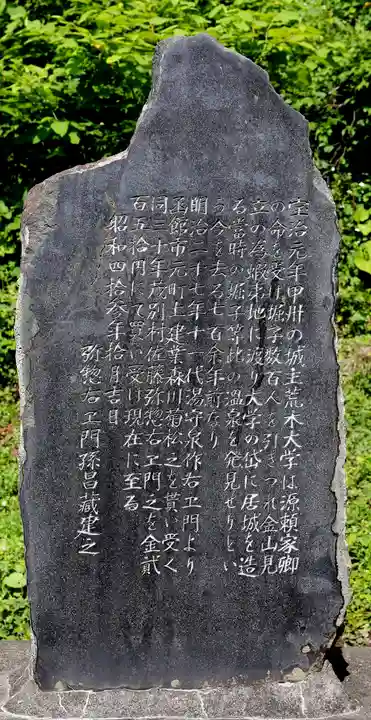 宝治元年甲州の城主荒木大学は源頼家卿
の命を受け堀子数百人を引きつれ金山見
立の為蝦夷地に渡り大学の岱に居城を造
る当時の堀子等此の温泉を発見せりとい
う今を去る七百余年前なり
明治二十七年十一代湯守泉作右ヱ門より
函館市元町土建業森川菊松之を貰い受く
同三十年茂別村佐藤弥惣右ヱ門之を金貮
百五拾円にて買い受け現在に至る
昭和四拾叁年拾月吉日
弥惣右ヱ門孫昌藏建之